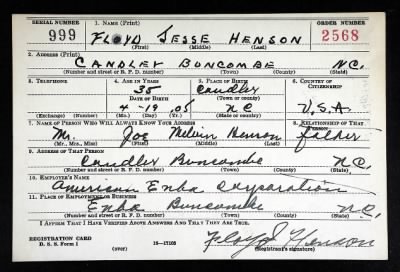 SERIAL NUMBER 1. NAME (Print) ORDER NUMBER
999 FLOYD JESSE HENSON 2568
(First) (Middle) (Last)
2. ADDRESS (Print)
CANDLEY BUNCOMBE N.C.
(Number and street or R. F. D. number) (Town) (County) (State)
3. TELEPHONE 4. AGE IN YEARS 5. PLACE OF BIRTH 6. COUNTRY OF CITIZENSHIP
35 Candler
DATE OF BIRTH (Town or county)
4-19-05 N C U.S.A
(Exchange) (Number) (Mo.) (Day) (Yr.) (State or country)
7. NAME OF PERSON WHO WILL ALWAYS KNOW YOUR ADDRESS 8. RELATIONSHIP OF THAT PERSON
Mr. Joe Melvin Henson father
(Mr., Mrs., Miss) (First) (Middle) (Last)
9. ADDRESS OF THAT PERSON
Candler Buncombe N.C.
(Number and street or R. F. D. number) (Town) (County) (State)
10. EMPLOYER'S NAME
American Enka Corporation
11. PLACE OF EMPLOYMENT OR BUSINESS
Enka Buncombe N.C.
(Number and street or R. F. D. number) (Town) (County) (State)
I AFFIRM THAT I HAVE VERIFIED ABOVE ANSWERS AND THAT THEY ARE TRUE.
REGISTRATION CARD
D. S. S. Form 1 (over) 16-17105 Floyd Henson
(Registrant's signature)